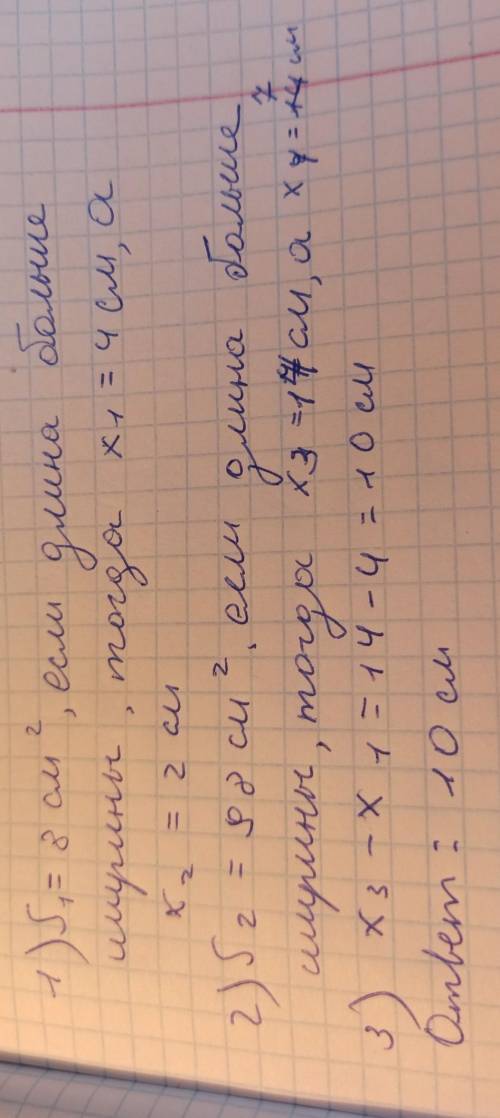 1) S₁ = 8 см², если длина больше
ширины, тогда x₁ = 4 см, а
x₂ = 2 см
2) S₂ = 98 см², если длина больше
ширины, тогда x₃ = 14 см, а x₄ = 7 см
3) x₃ - x₁ = 14 - 4 = 10 см
Ответ: 10 см